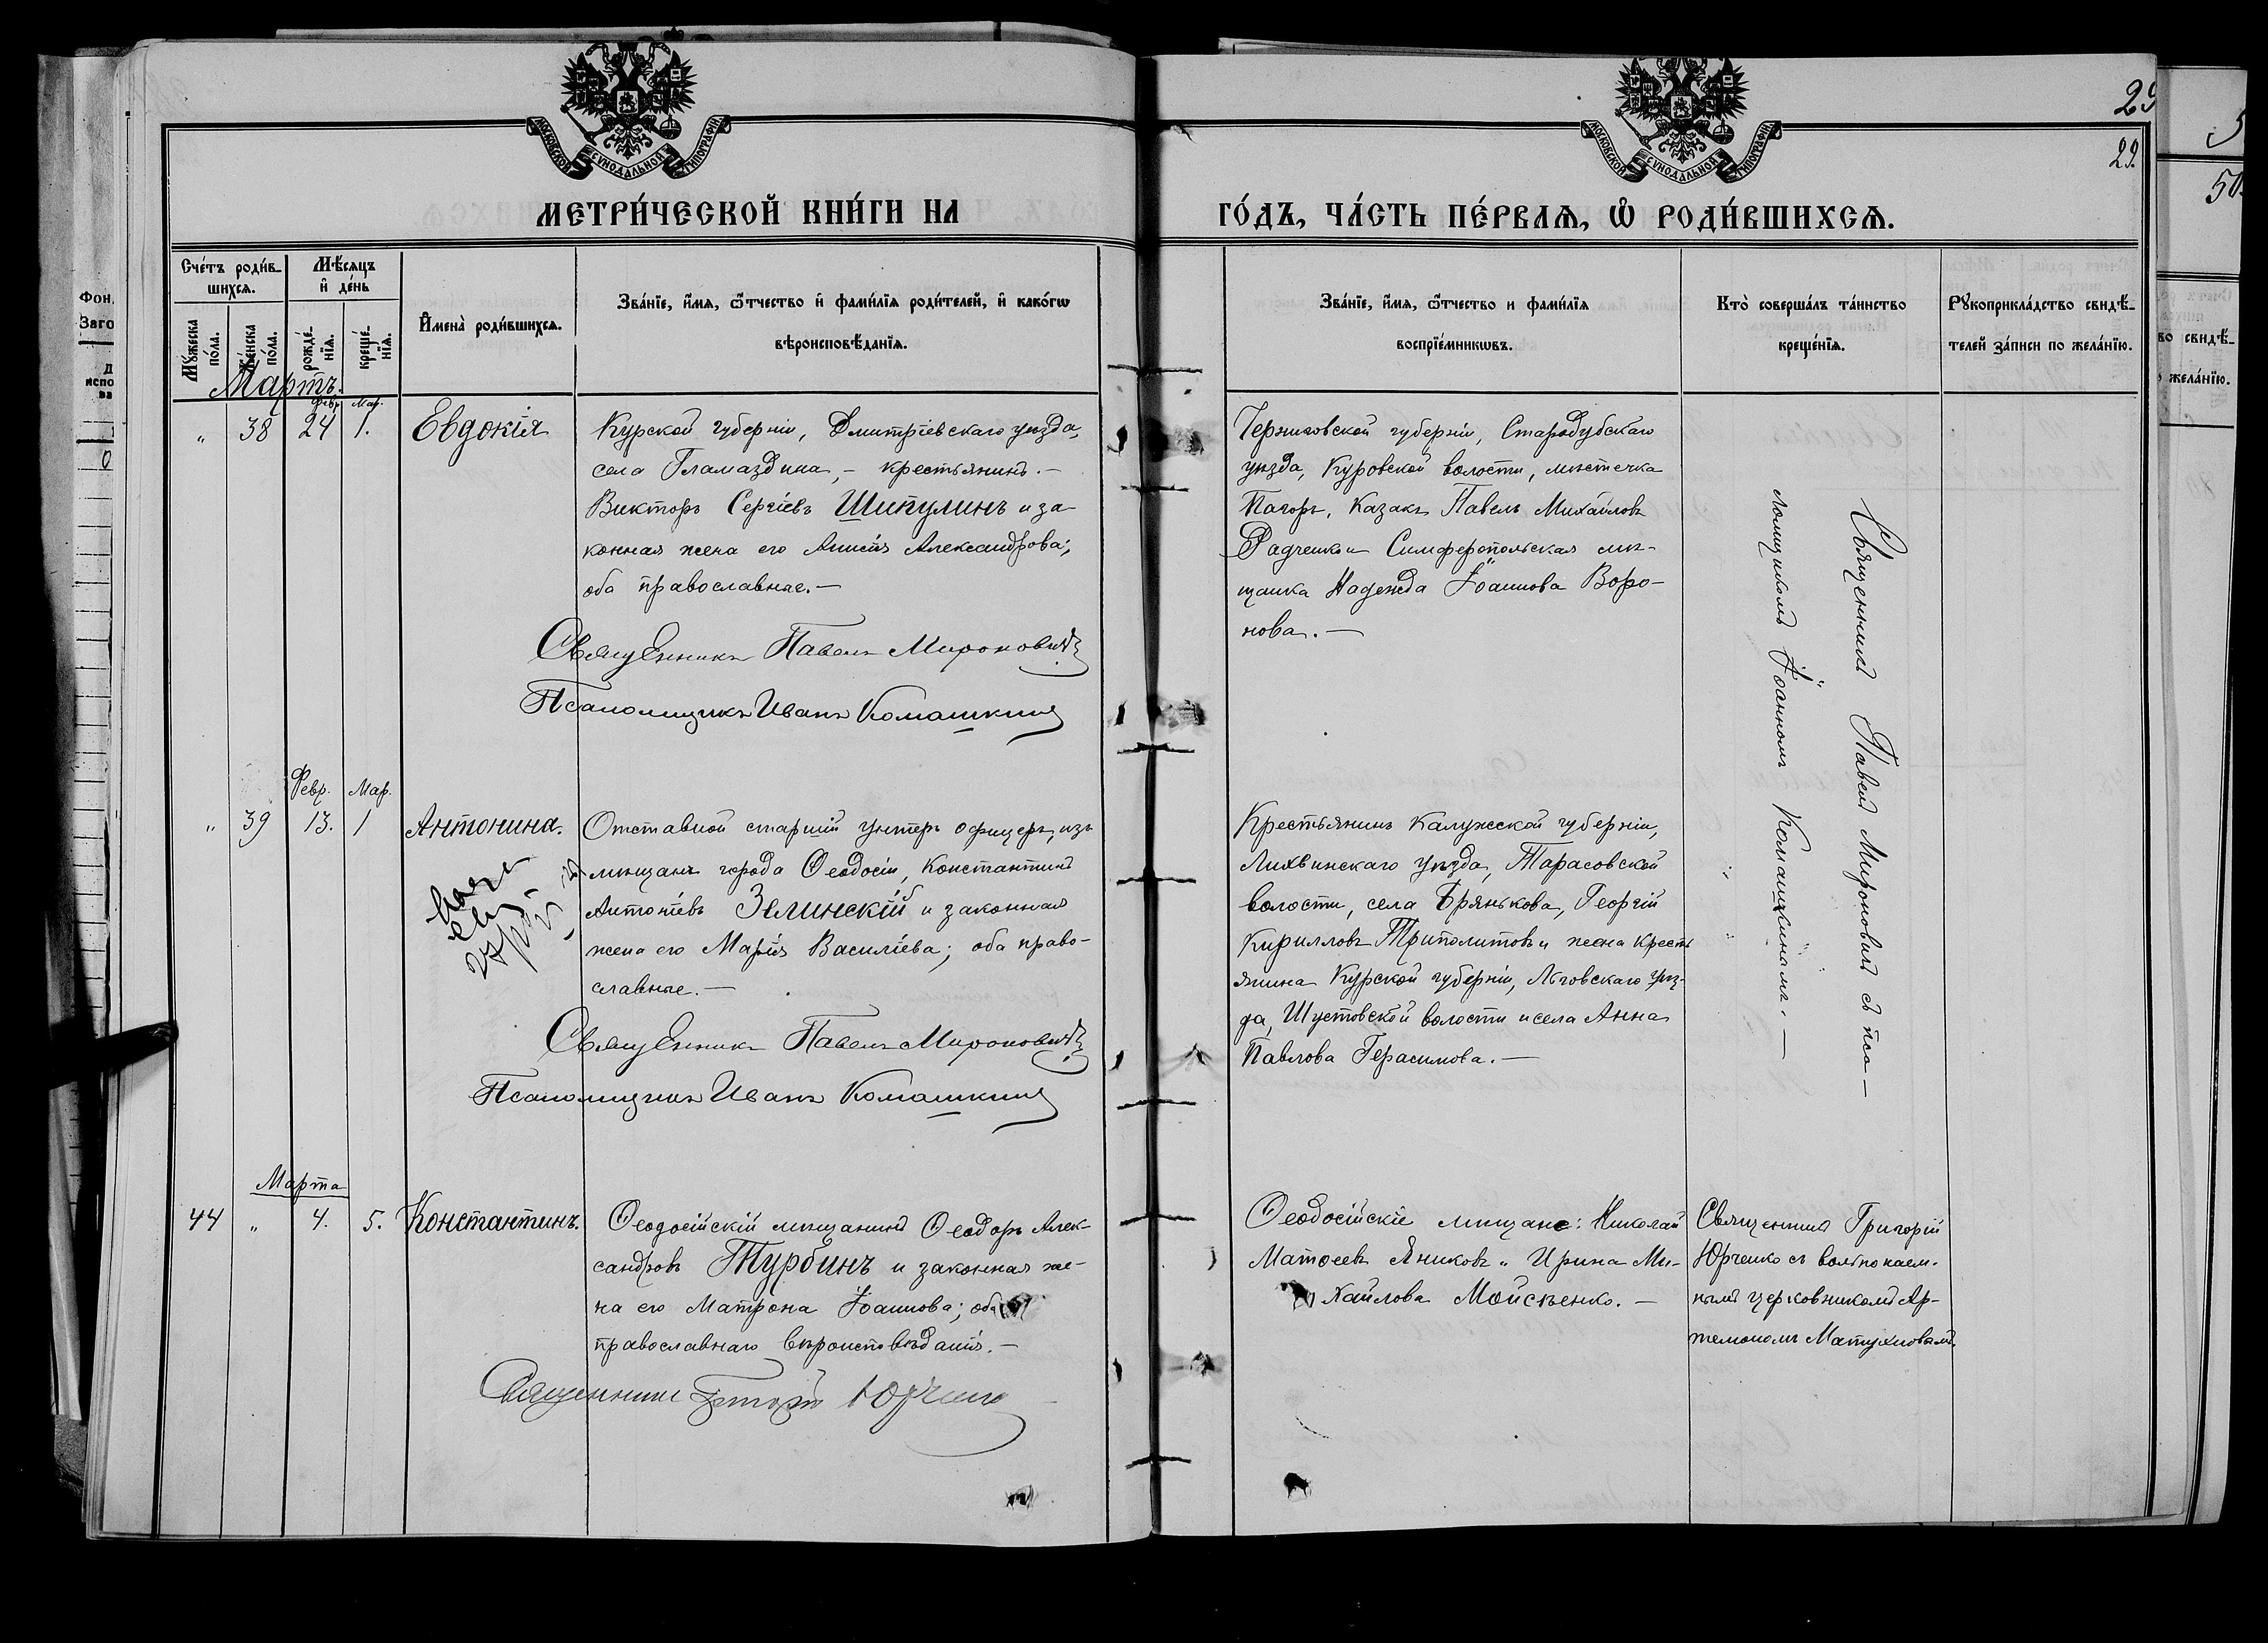 29
29.
МОСКОВСКОЙ СѴНОДАЛЬНОЙ ТИПОГРАФІИ
МОСКОВСКОЙ СѴНОДАЛЬНОЙ ТИПОГРАФІИ
МЕТРИ́ЧЕСКОЙ КНИ́ГИ НА
ГО́ДЪ, ЧА́СТЬ ПЕ́РВАѦ, Ѡ҆ РОДИ́ВШИХСѦ.
Сче́тъ роди́в-
шихсѧ.
Мѣ́сѧцъ
и҆ де́нь
Мꙋ́жеска
по́ла.
Же́нска
по́ла.
рожде́-
нїѧ.
креще́-
нїѧ.
И҆мена̀ роди́вшихсѧ.
Зва́нїе, и҆́мѧ, ѻ҆́тчество и҆ фами́лїѧ роди́телей, и҆ како́гѡ
вѣроисповѣ́данїѧ.
Зва́нїе, и҆́мѧ, ѻ҆́тчество и фами́лїѧ
воспрїе́мникѡвъ.
Кто̀ соверша́лъ та́инство
креще́нїѧ.
Рꙋкоприкла́дство свидѣ́-
телей за́писи по жела́нїю.
Мартъ.
Февр. Мар.
" 38 24 1. Евдокія
Курской губерніи, Дмитріевскаго уѣзда,
села Гламаздина, - крестьянинъ. -
Викторъ Сергіевъ Шипулинъ и за
конная жена его Анисія Александрова;
оба православные. -
Священникъ Павелъ Мироновичъ
Псаломщикъ Иванъ Комашкинъ
Черниговской губерніи, Стародубскаго
уѣзда, Куровской волости, мѣстечка
Погоръ, Казакъ Павелъ Михайловъ
Радченко и Симферопольская мѣ-
щанка Надежда Іоаннова Воро-
нова. -
Священникъ Павелъ Мироновичъ съ пса-
ломщикомъ Іоанномъ Комашкинымъ. -
Февр. Мар.
" 39 13. 1 Антонина.
Отставной старшій унтеръ офицеръ, изъ
мѣщанъ города Ѳеодосіи, Константинъ
Антоніевъ Зелинскій и законная
жена его Марія Василіева; оба право-
славные. -
Священникъ Павелъ Мироновичъ
Псаломщикъ Иванъ Комашкинъ
Крестьянинъ Калужской губерніи,
Лихвинскаго уѣзда, Тарасовской
волости, села Брянькова, Георгій
Кирилловъ Триполитовъ и жена кресть
янина Курской губерніи, Льговскаго уѣз-
да, Шустовской волости и села Анна
Павлова Герасимова. -
Марта
44 " 4. 5. Константинъ.
Ѳеодосійскій мѣщанинъ Ѳеодоръ Алек-
сандровъ Турбинъ и законная же-
на его Матрона Іоаннова; оба
православнаго вѣроисповѣданія. -
Священникъ Григорій Юрченко
Ѳеодосійскіе мѣщане: Николай
Матѳеевъ Яниковъ и Ирина Ми-
хайлова Мойсѣенко. -
Священникъ Григорій
Юрченко съ вольнонаем-
нымъ церковникомъ Ар-
темономъ Матухновымъ.
Фон.
Заго
испо
50
во свидѣ́-
жела́нїю.